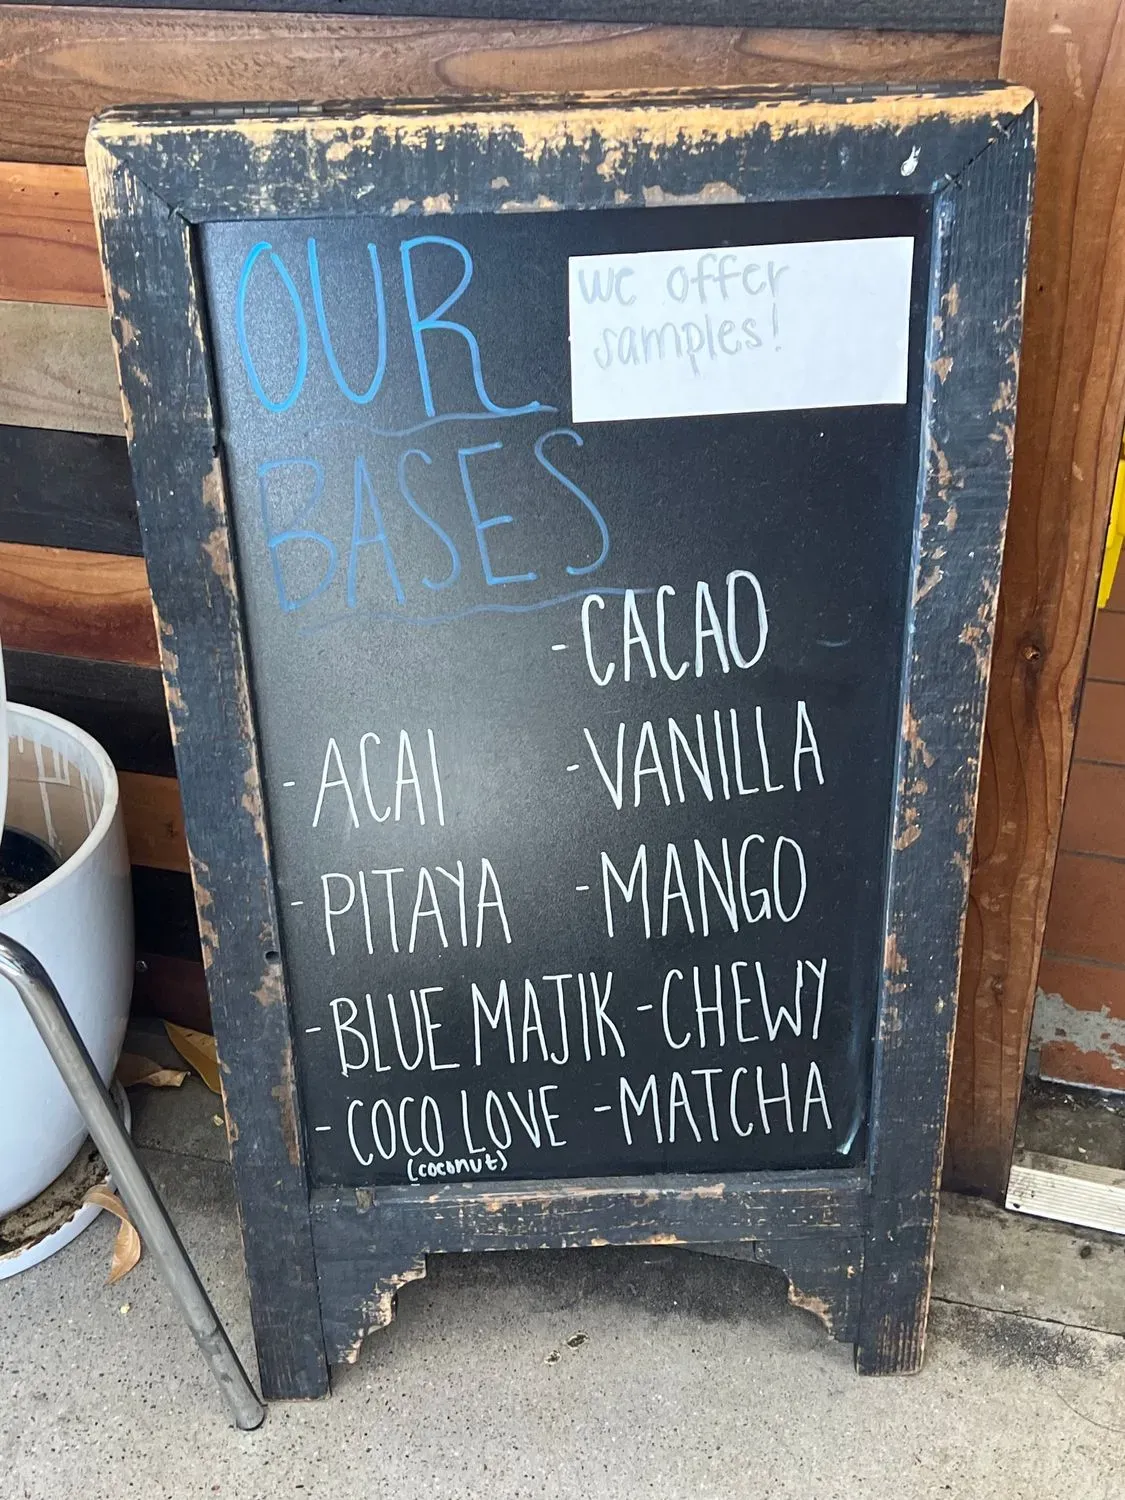 OUR
BASES
we offer
samples!
- CACAO
- ACAI
- VANILLA
- PITAYA
- MANGO
- BLUE MAJIK
- CHEWY
- COCO LOVE
(coconut)
- MATCHA